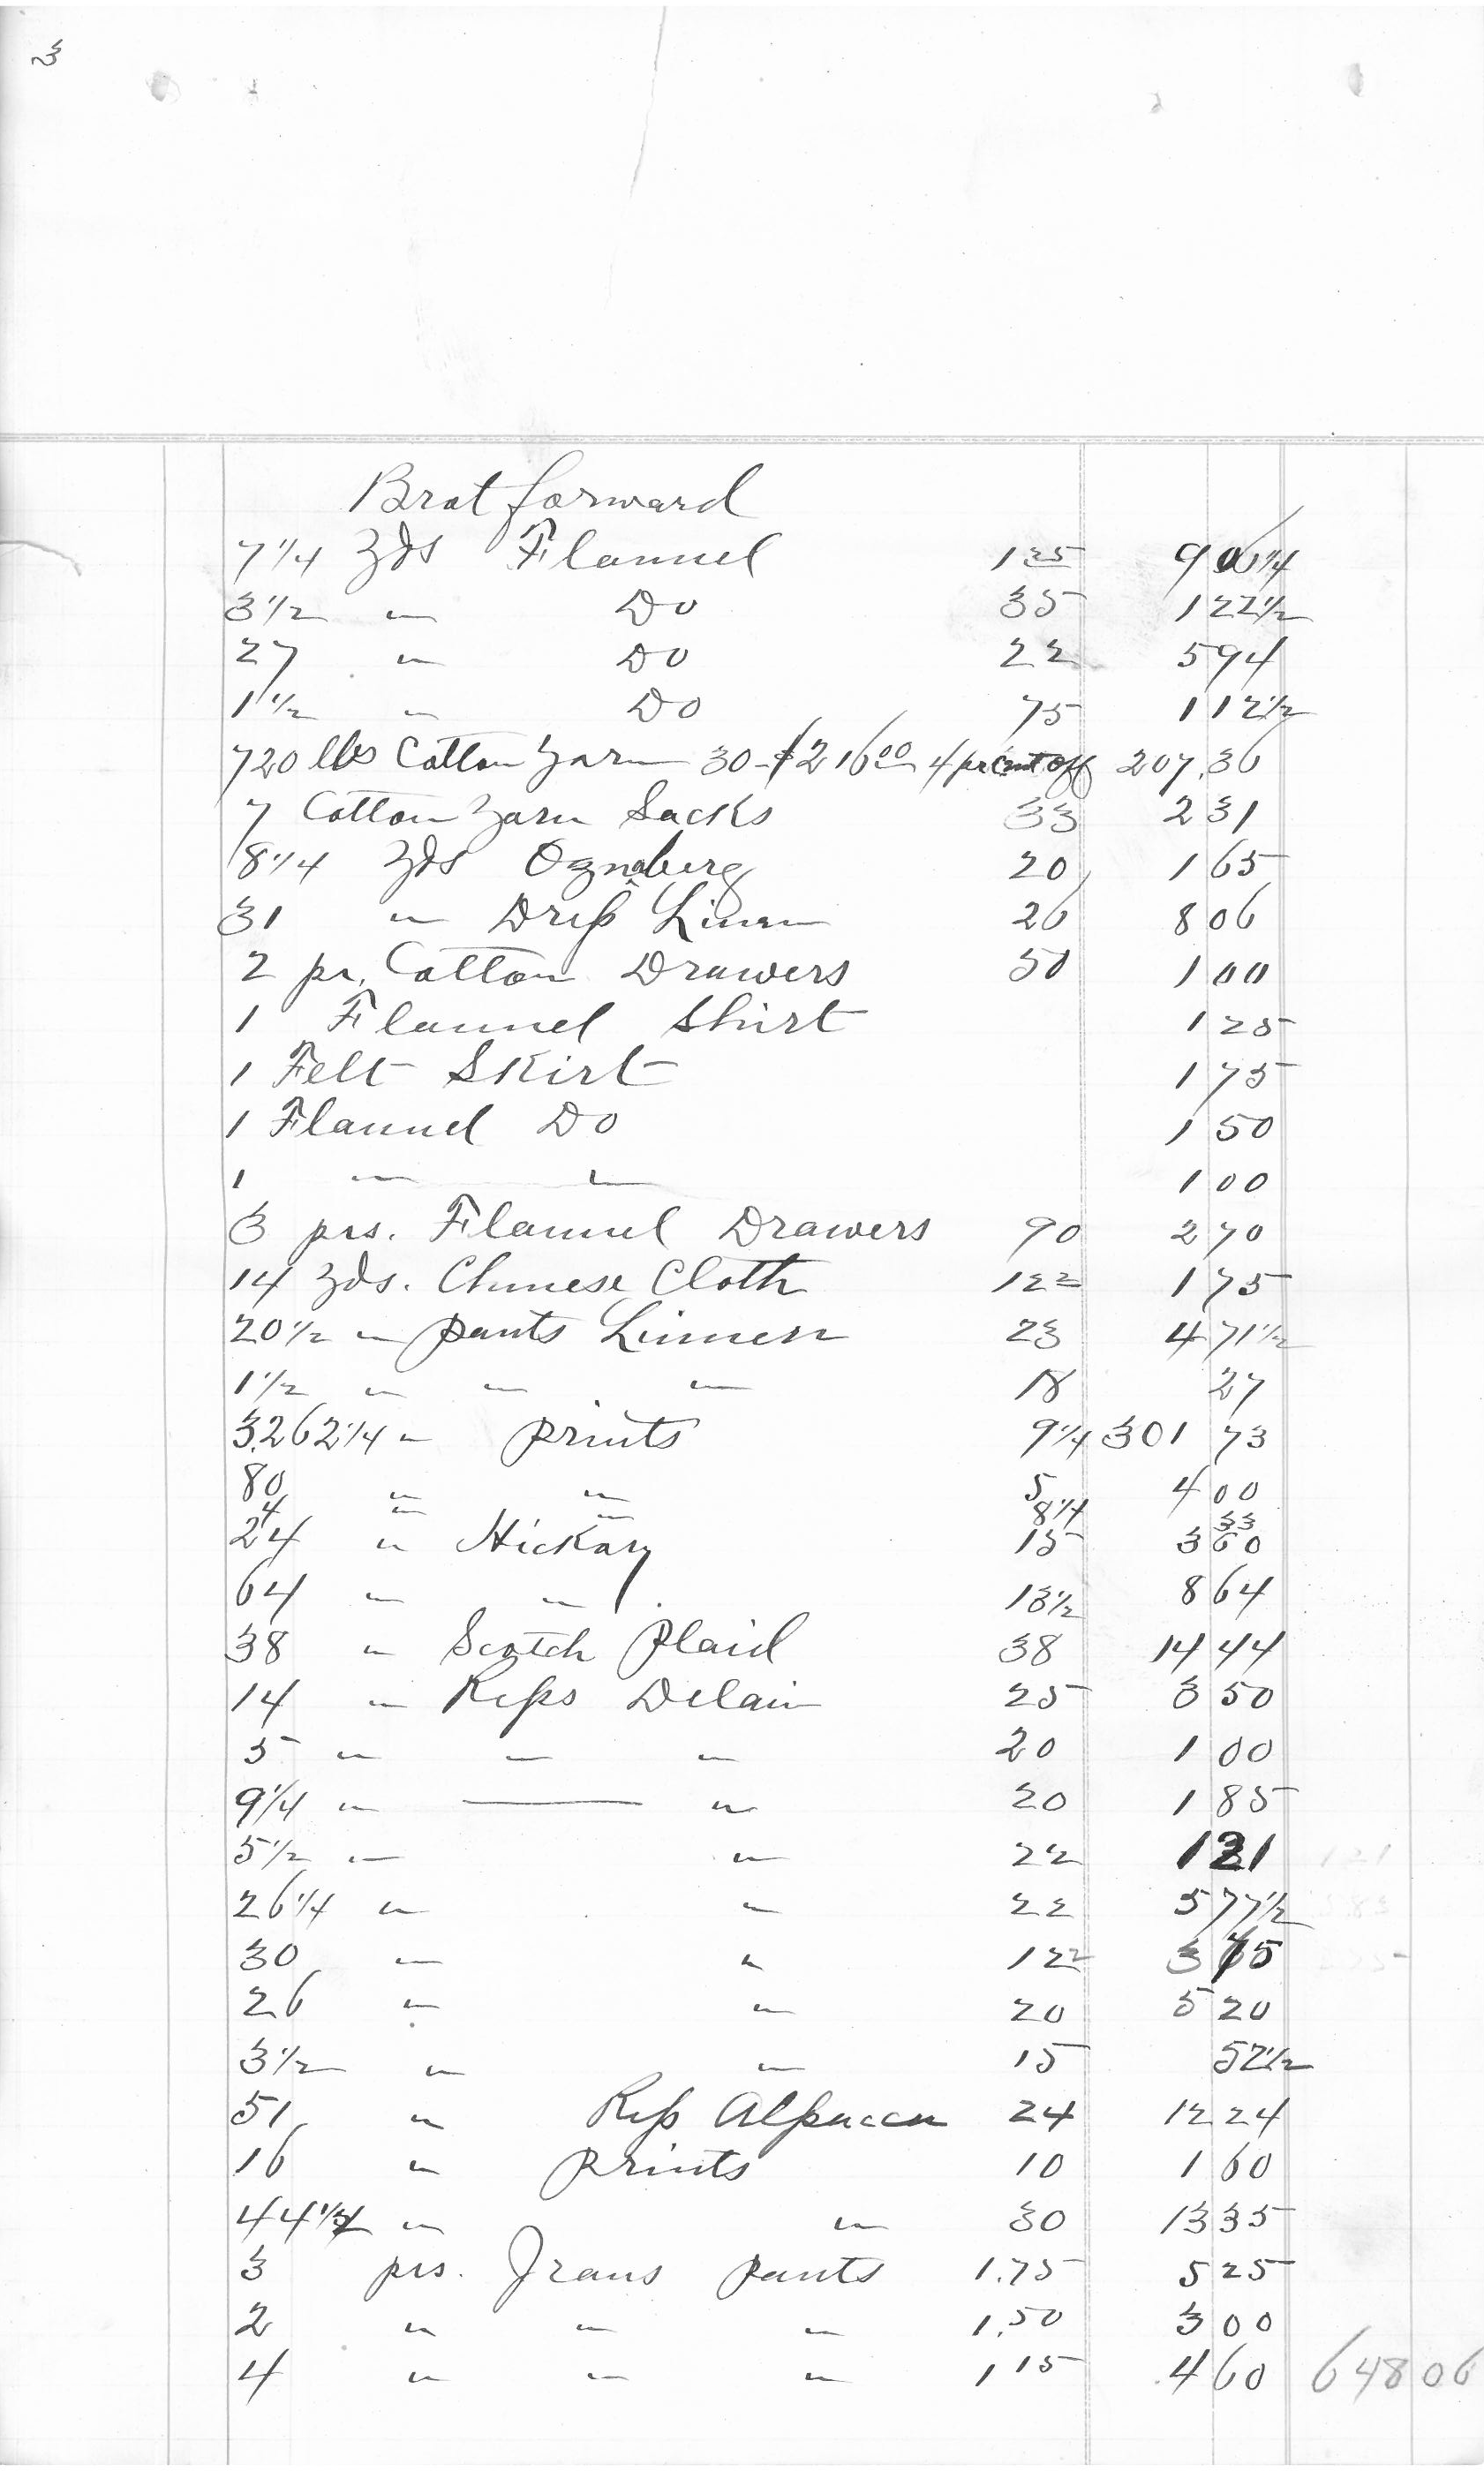 3
Brot forward
7 1/4 Yds Flannel 1 25 9 06 1/4
3 1/2 " Do 35 1 22 1/2
27 " Do 22 5 94
1 1/2 " Do 75 1 12 1/2
720 lbs Cotton Yarn 30 - $216 00 4 pr cent off 207.36
7 Cotton Yarn Sacks 33 2 31
8 1/4 Yds Oznaberg 20 1 65
31 " Dress Linen 26 8 06
2 pr. Cotton Drawers 50 1 00
1 Flannel Shirt 1 25
1 Felt Skirt 1 75
1 Flannel Do 1 50
1 " " 1 00
3 prs. Flannel Drawers 90 2 70
14 Yds. Chinese Cloth 12 1/2 1 75
20 1/2 " pants Linnen 23 4 71 1/2
1 1/2 " " " 18 27
3,262 1/4 " prints 9 1/4 301 73
80 " " 5 4 00
4 " " 8 1/4 33
24 " Hickory 15 3 60
64 " " 13 1/2 8 64
38 " Scotch Plaid 38 14 44
14 " Reps Delain 25 3 50
5 " " " 20 1 00
9 1/4 " — " 20 1 85
5 1/2 " " 22 1 21
26 1/4 " " 22 5 77 1/2
30 " " 12 1/2 3 75
26 " " 20 5 20
3 1/2 " " 15 52 1/2
51 " Rep Alpacca 24 12 24
16 " prints 10 1 60
44 1/2 " " 30 13 35
3 prs. Jeans pants 1.75 5 25
2 " " " 1.50 3 00
4 " " " 1 15 4 60 648 06